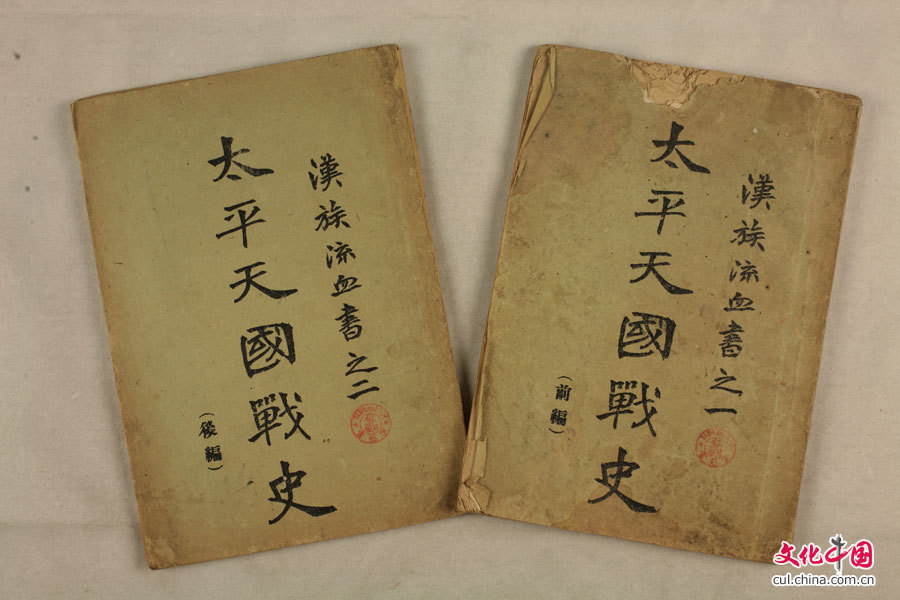 漢族流血書之二
太平天國戰史
(後編)
漢族流血書之一
太平天國戰史
(前編)
文化中国
cul.china.com.cn